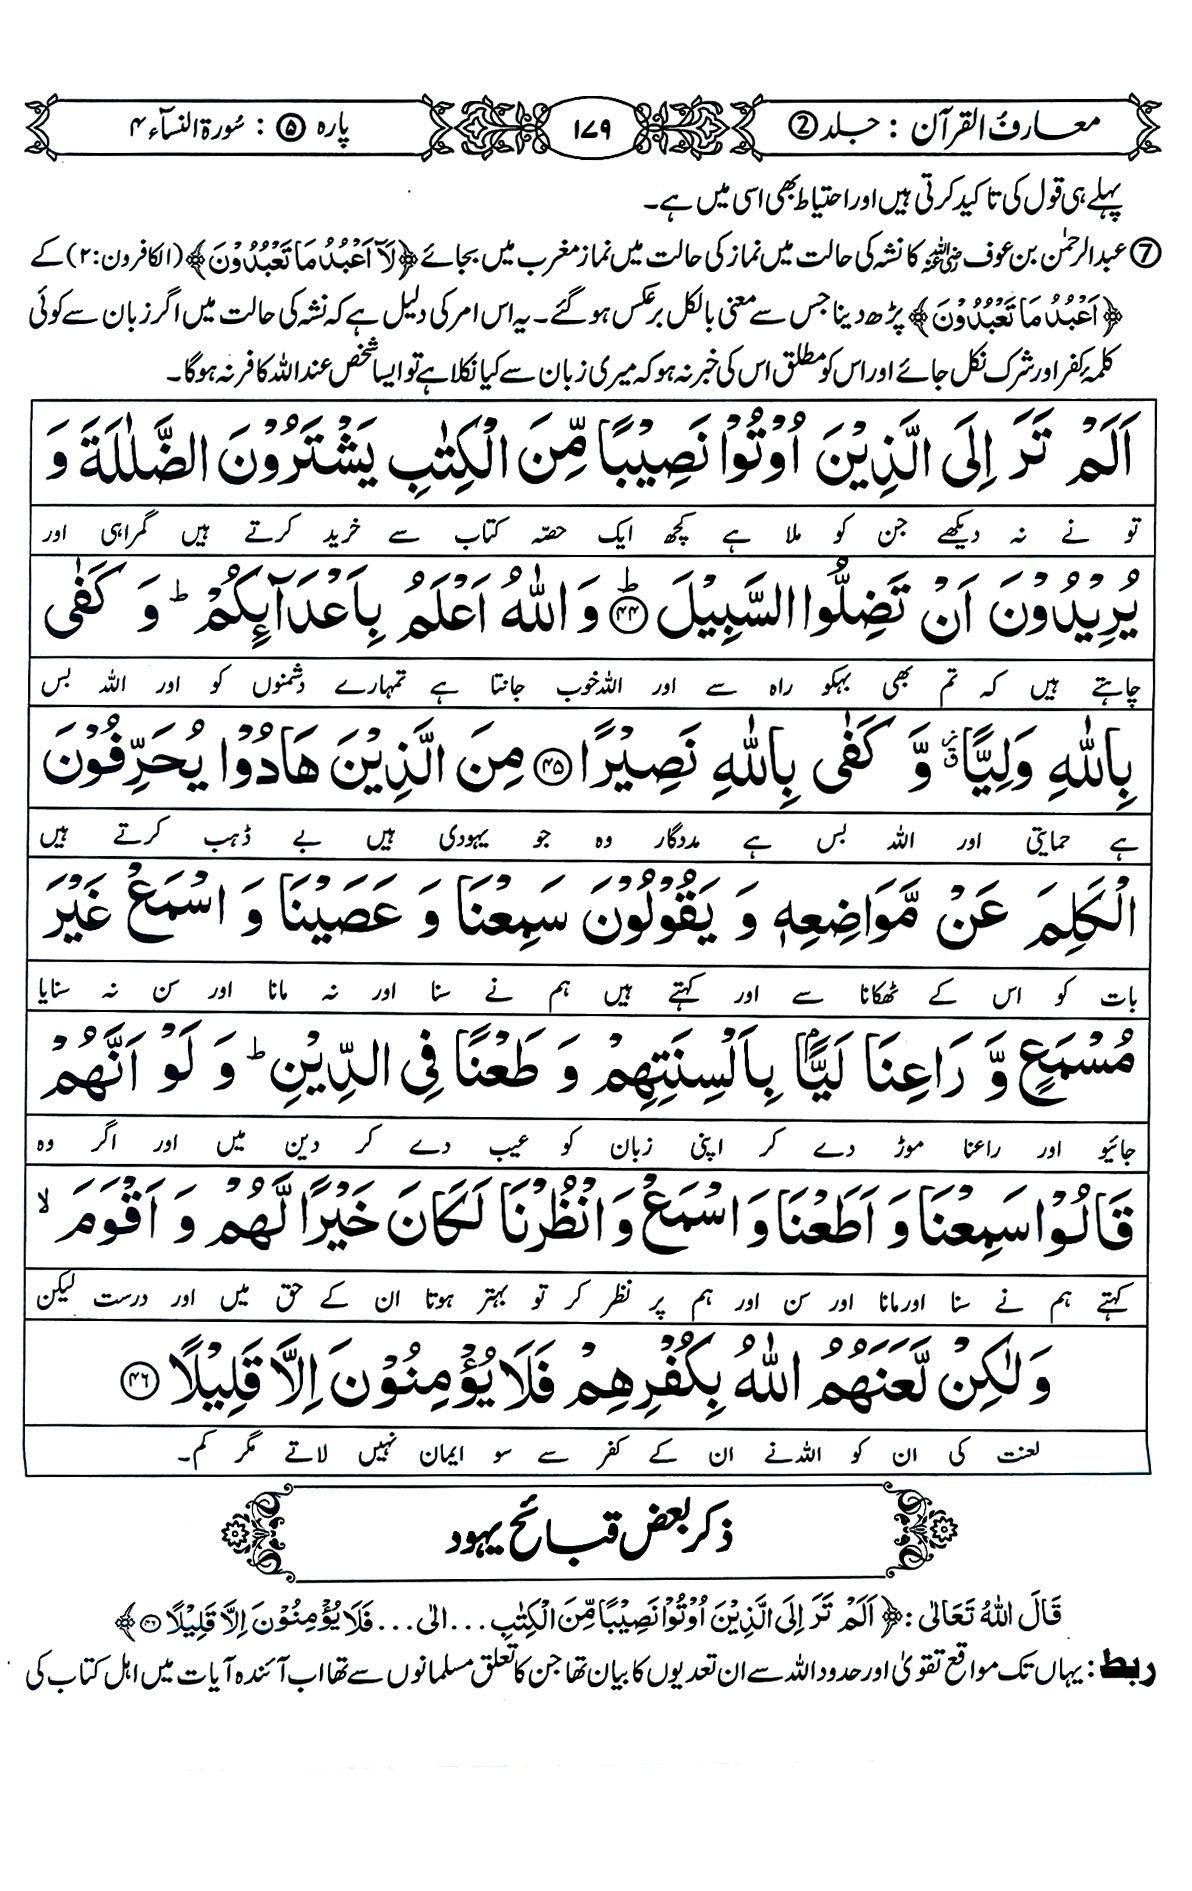 معارف القرآن : جلد ②
۱۷۹
پارہ ⑤ : سُورۃ النسآء ۴
پہلے ہی قول کی تاکید کرتی ہیں اور احتیاط بھی اسی میں ہے۔
⑦ عبدالرحمٰن بن عوف رضی اللہ عنہ کا نشہ کی حالت میں نماز کی حالت میں نماز مغرب میں بجائے ﴿لَآ اَعْبُدُ مَا تَعْبُدُوْنَ﴾ (الکافرون:۲) کے
﴿اَعْبُدُ مَا تَعْبُدُوْنَ﴾ پڑھ دینا جس سے معنی بالکل برعکس ہو گئے۔ یہ اس امر کی دلیل ہے کہ نشہ کی حالت میں اگر زبان سے کوئی
کلمۂ کفر اور شرک نکل جائے اور اس کو مطلق اس کی خبر نہ ہو کہ میری زبان سے کیا نکلا ہے تو ایسا شخص عند اللہ کافر نہ ہوگا۔
اَلَمْ تَرَ اِلَى الَّذِيْنَ اُوْتُوْا نَصِيْبًا مِّنَ الْكِتٰبِ يَشْتَرُوْنَ الضَّلٰلَةَ وَ
تو نے نہ دیکھے جن کو ملا ہے کچھ ایک حصّہ کتاب سے خرید کرتے ہیں گمراہی اور
يُرِيْدُوْنَ اَنْ تَضِلُّوا السَّبِيْلَ ؕ ۴۴ وَ اللّٰهُ اَعْلَمُ بِاَعْدَآىِٕكُمْ ؕ وَ كَفٰى
چاہتے ہیں کہ تم بھی بہکو راہ سے اور اللہ خوب جانتا ہے تمہارے دشمنوں کو اور اللہ بس
بِاللّٰهِ وَلِيًّا ۗۙ وَّ كَفٰى بِاللّٰهِ نَصِيْرًا ۴۵ مِنَ الَّذِيْنَ هَادُوْا يُحَرِّفُوْنَ
ہے حمایتی اور اللہ بس ہے مددگار وہ جو یہودی ہیں بے ڈھب کرتے ہیں
الْكَلِمَ عَنْ مَّوَاضِعِهٖ وَ يَقُوْلُوْنَ سَمِعْنَا وَ عَصَيْنَا وَ اسْمَعْ غَيْرَ
بات کو اس کے ٹھکانا سے اور کہتے ہیں ہم نے سنا اور نہ مانا اور سن نہ سنایا
مُسْمَعٍ وَّ رَاعِنَا لَيًّۢا بِاَلْسِنَتِهِمْ وَ طَعْنًا فِى الدِّيْنِ ؕ وَ لَوْ اَنَّهُمْ
جائیو اور راعنا موڑ دے کر اپنی زبان کو عیب دے کر دین میں اور اگر وہ
قَالُوْا سَمِعْنَا وَ اَطَعْنَا وَ اسْمَعْ وَ انْظُرْنَا لَكَانَ خَيْرًا لَّهُمْ وَ اَقْوَمَ ۙ
کہتے ہم نے سنا اور مانا اور سن اور ہم پر نظر کر تو بہتر ہوتا ان کے حق میں اور درست لیکن
وَ لٰكِنْ لَّعَنَهُمُ اللّٰهُ بِكُفْرِهِمْ فَلَا يُؤْمِنُوْنَ اِلَّا قَلِيْلًا ۴۶
لعنت کی ان کو اللہ نے ان کے کفر سے سو ایمان نہیں لاتے مگر کم۔
ذکر بعض قبائح یہود
قَالَ اللّٰهُ تَعَالٰى : ﴿اَلَمْ تَرَ اِلَى الَّذِيْنَ اُوْتُوْا نَصِيْبًا مِّنَ الْكِتٰبِ ... الٰى ... فَلَا يُؤْمِنُوْنَ اِلَّا قَلِيْلًا ۴۶﴾
ربط : یہاں تک مواقع تقویٰ اور حدود اللہ سے ان تعدیوں کا بیان تھا جن کا تعلق مسلمانوں سے تھا اب آئندہ آیات میں اہل کتاب کی